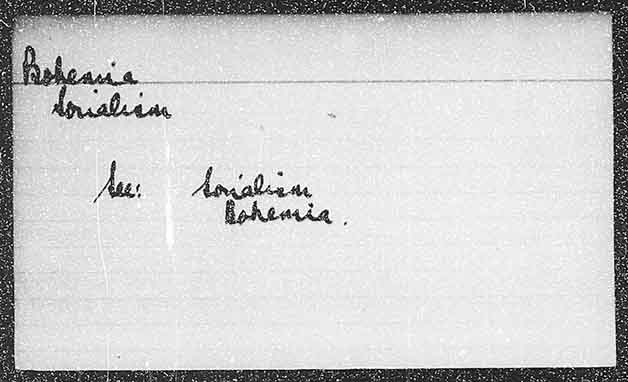 Bohemia
Socialism
See: Socialism
Bohemia.